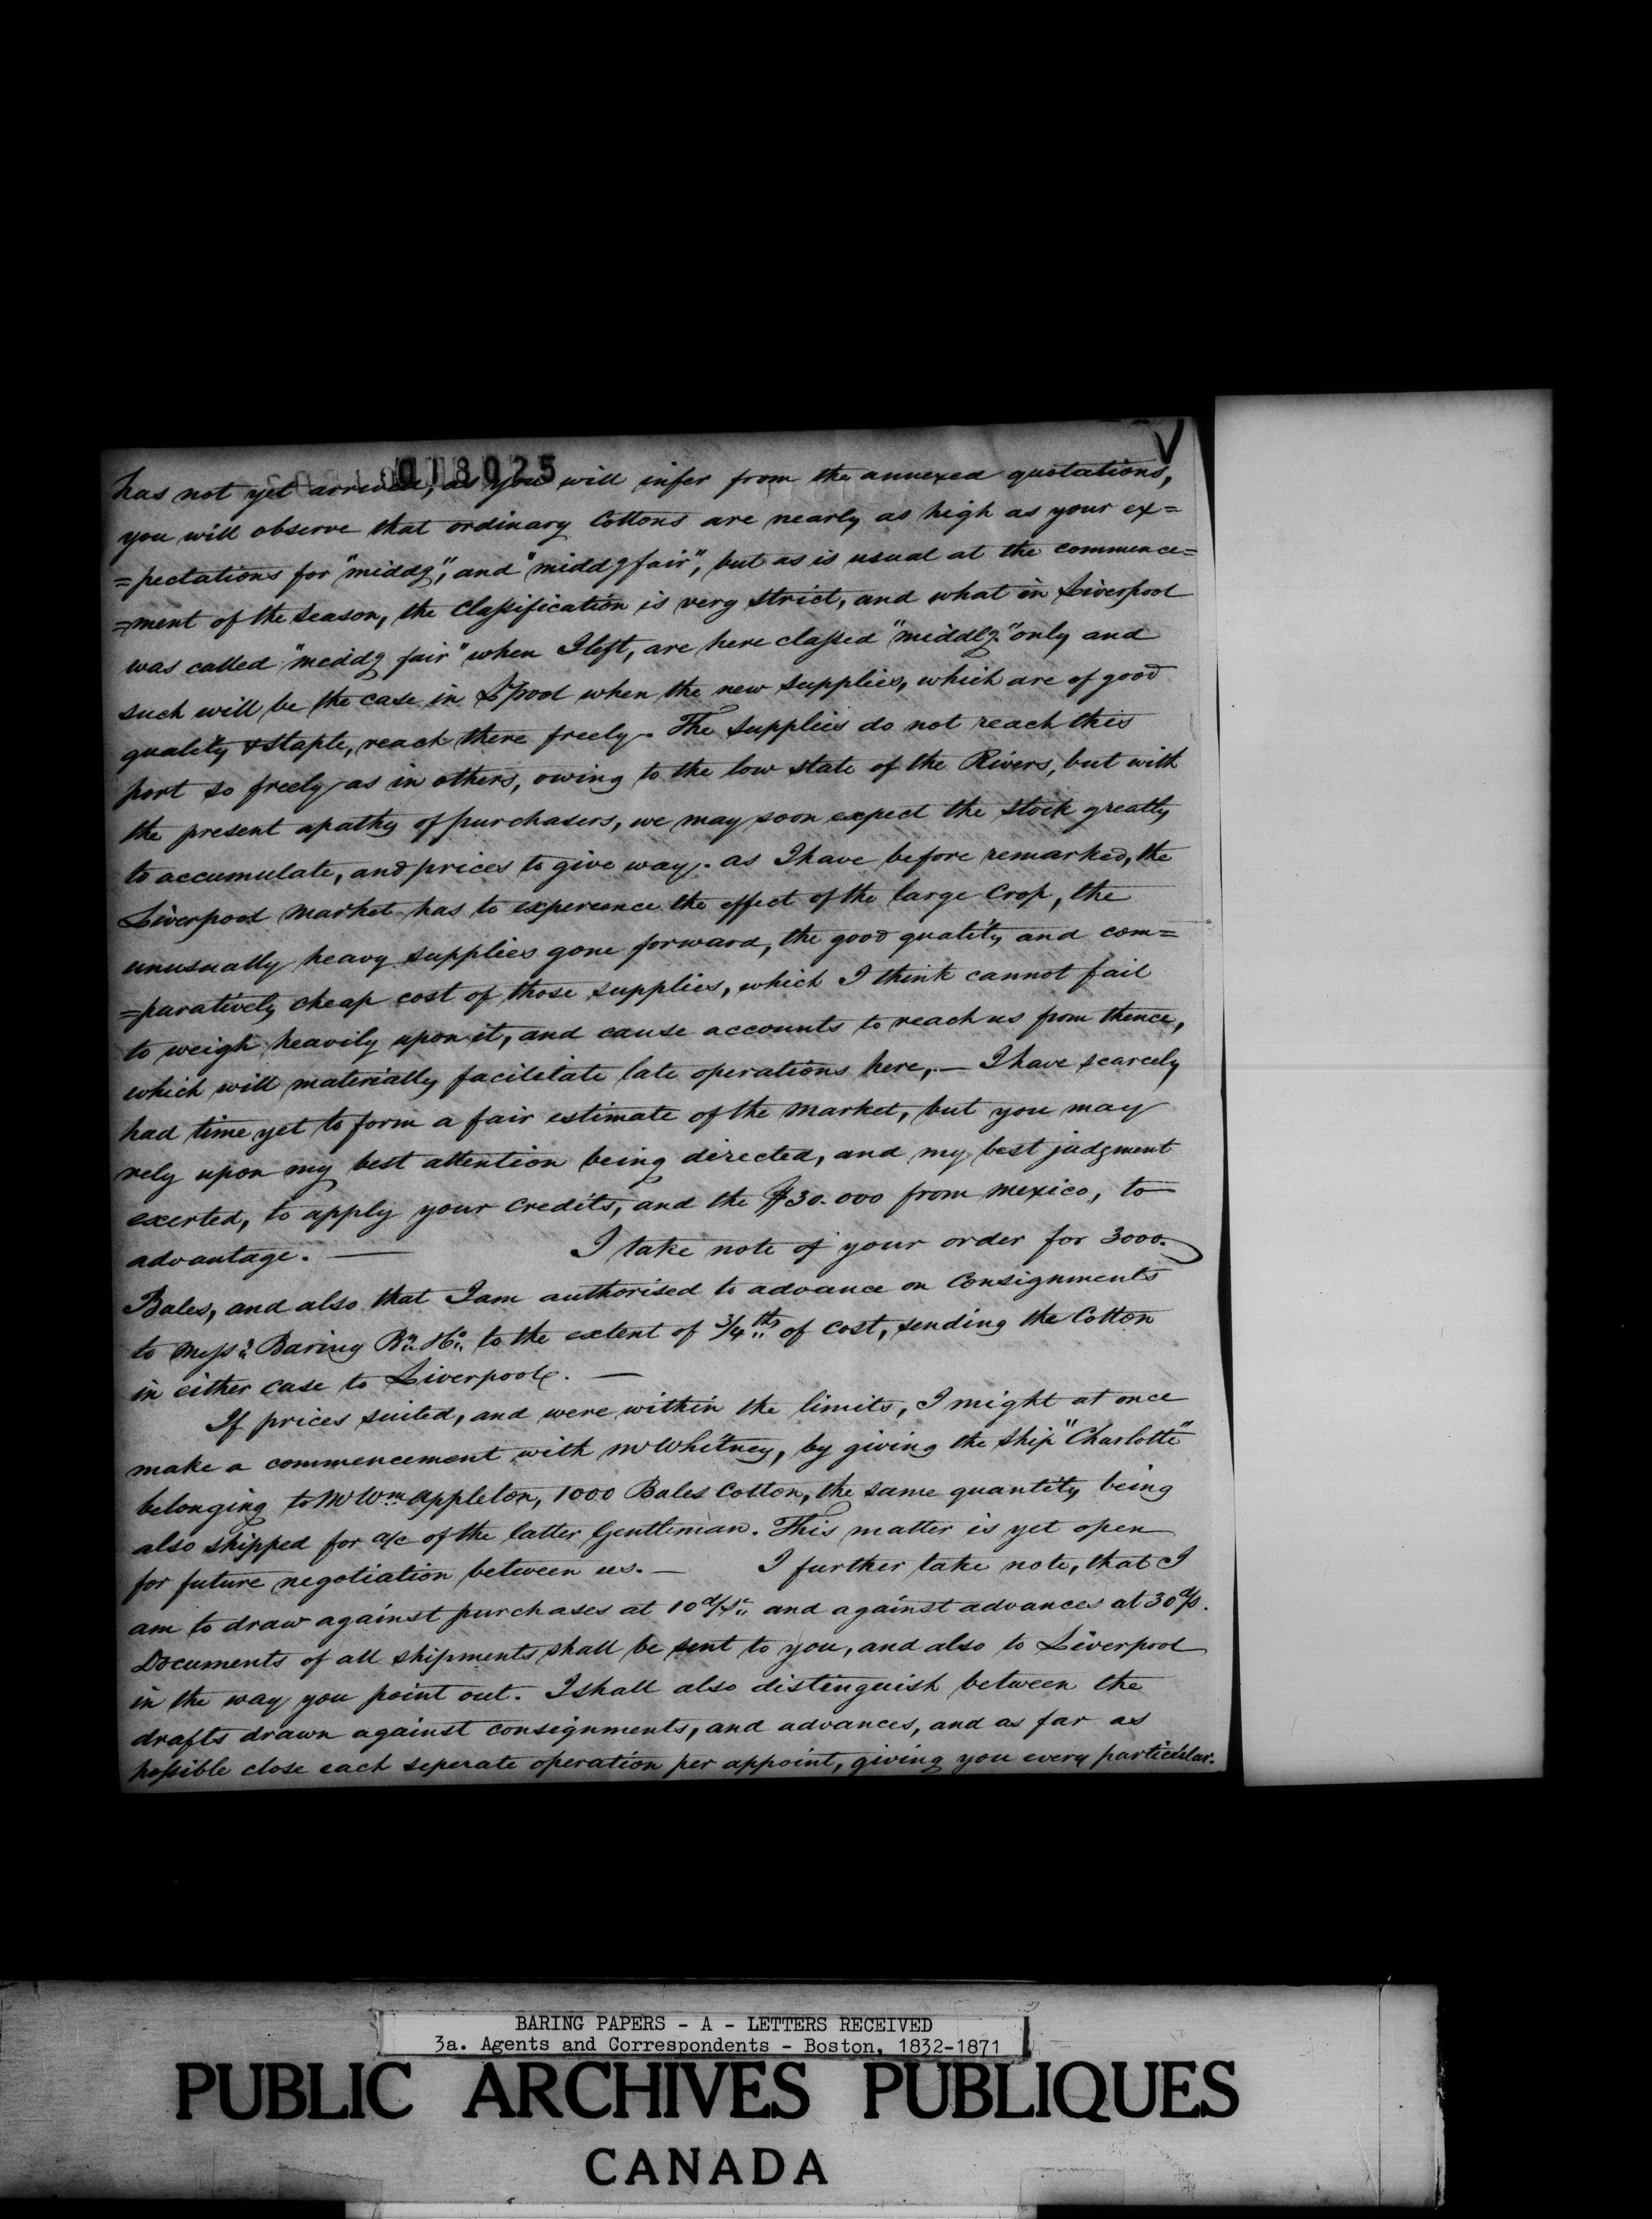 018025
has not yet arrived, as you will infer from the annexed quotations,
you will observe that ordinary Cottons are nearly as high as your ex=
=pectations for "middg", and "middg fair", but as is usual at the commence=
=ment of the season, the classification is very strict, and what in Liverpool
was called "middg fair" when I left, are here classed "middlg" only and
such will be the case in L'pool when the new supplies, which are of good
quality & staple, reach there freely. The supplies do not reach this
port so freely as in others, owing to the low state of the Rivers, but with
the present apathy of purchasers, we may soon expect the stock greatly
to accumulate, and prices to give way. as I have before remarked, the
Liverpool market has to experience the effect of the large Crop, the
unusually heavy supplies gone forward, the good quality and com=
=paratively cheap cost of those supplies, which I think cannot fail
to weigh heavily upon it, and cause accounts to reach us from thence,
which will materially facilitate late operations here, — I have scarcely
had time yet to form a fair estimate of the market, but you may
rely upon my best attention being directed, and my best judgment
exerted, to apply your Credits, and the $30.000 from Mexico, to
advantage. — I take note of your order for 3000.
Bales, and also that I am authorised to advance on Consignments
to Messrs Baring Brs & Co to the extent of 3/4ths of cost, sending the Cotton
in either case to Liverpool. —
If prices suited, and were within the limits, I might at once
make a commencement with Mr Whitney, by giving the ship "Charlotte"
belonging to Mr Wm Appleton, 1000 Bales Cotton, the same quantity being
also shipped for a/c of the latter Gentleman. This matter is yet open
for future negotiation between us. — I further take note, that I
am to draw against purchases at 10 d/st and against advances at 30 d/s.
Documents of all shipments shall be sent to you, and also to Liverpool
in the way you point out. I shall also distinguish between the
drafts drawn against consignments, and advances, and as far as
possible close each seperate operation per appoint, giving you every particular.
BARING PAPERS - A - LETTERS RECEIVED
3a. Agents and Correspondents - Boston, 1832-1871
PUBLIC ARCHIVES PUBLIQUES
CANADA